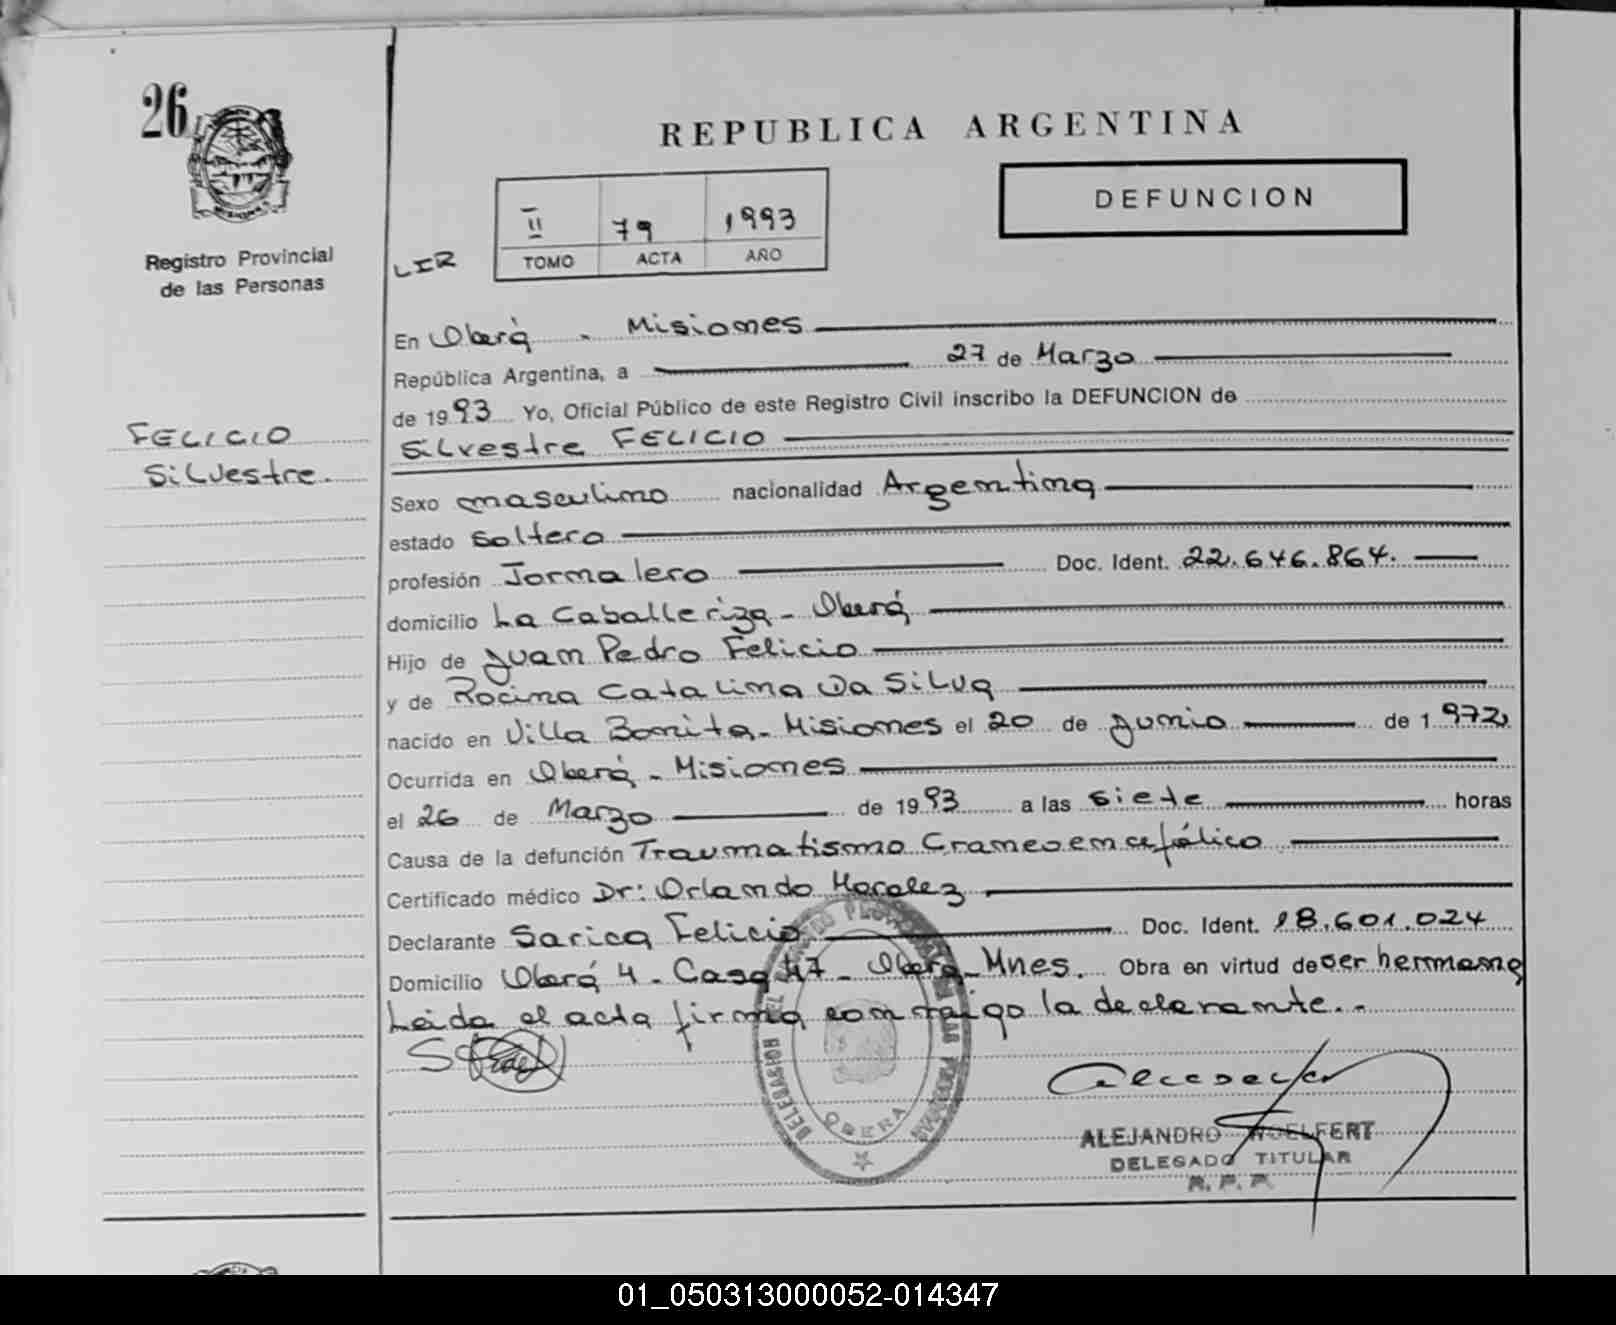 26
REPUBLICA ARGENTINA
DEFUNCION
II 79 1993
TOMO ACTA AÑO
LIR
Registro Provincial
de las Personas
FELICIO
Silvestre.
En Oberá - Misiones
República Argentina, a 27 de Marzo
de 1993 Yo, Oficial Público de este Registro Civil inscribo la DEFUNCION de
Silvestre FELICIO
Sexo masculino nacionalidad Argentina
estado Soltero
profesión Jornalero Doc. Ident. 22.646.864.
domicilio La Caballeriza - Oberá
Hijo de Juan Pedro Felicio
y de Rocina Catalina Da Silva
nacido en Villa Bonita - Misiones el 20 de Junio de 1972
Ocurrida en Oberá - Misiones
el 26 de Marzo de 1993 a las siete horas
Causa de la defunción Traumatismo Craneoencefálico
Certificado médico Dr: Orlando Moralez
Declarante Sarica Felicio Doc. Ident. 18.601.024
Domicilio Oberá 4 - Casa 47 - Oberá - Mnes. Obra en virtud de ser hermana
Leida el acta firma conmigo la declarante..
OBERA
ALEJANDRO WOELFERT
DELEGADO TITULAR
R. P. P.
01_050313000052-014347